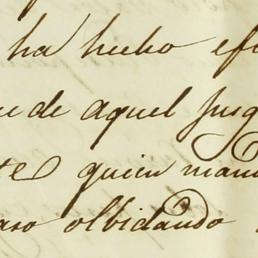 ha hecho ef
ue de aquel Juzg
te quien man
aso olvidando